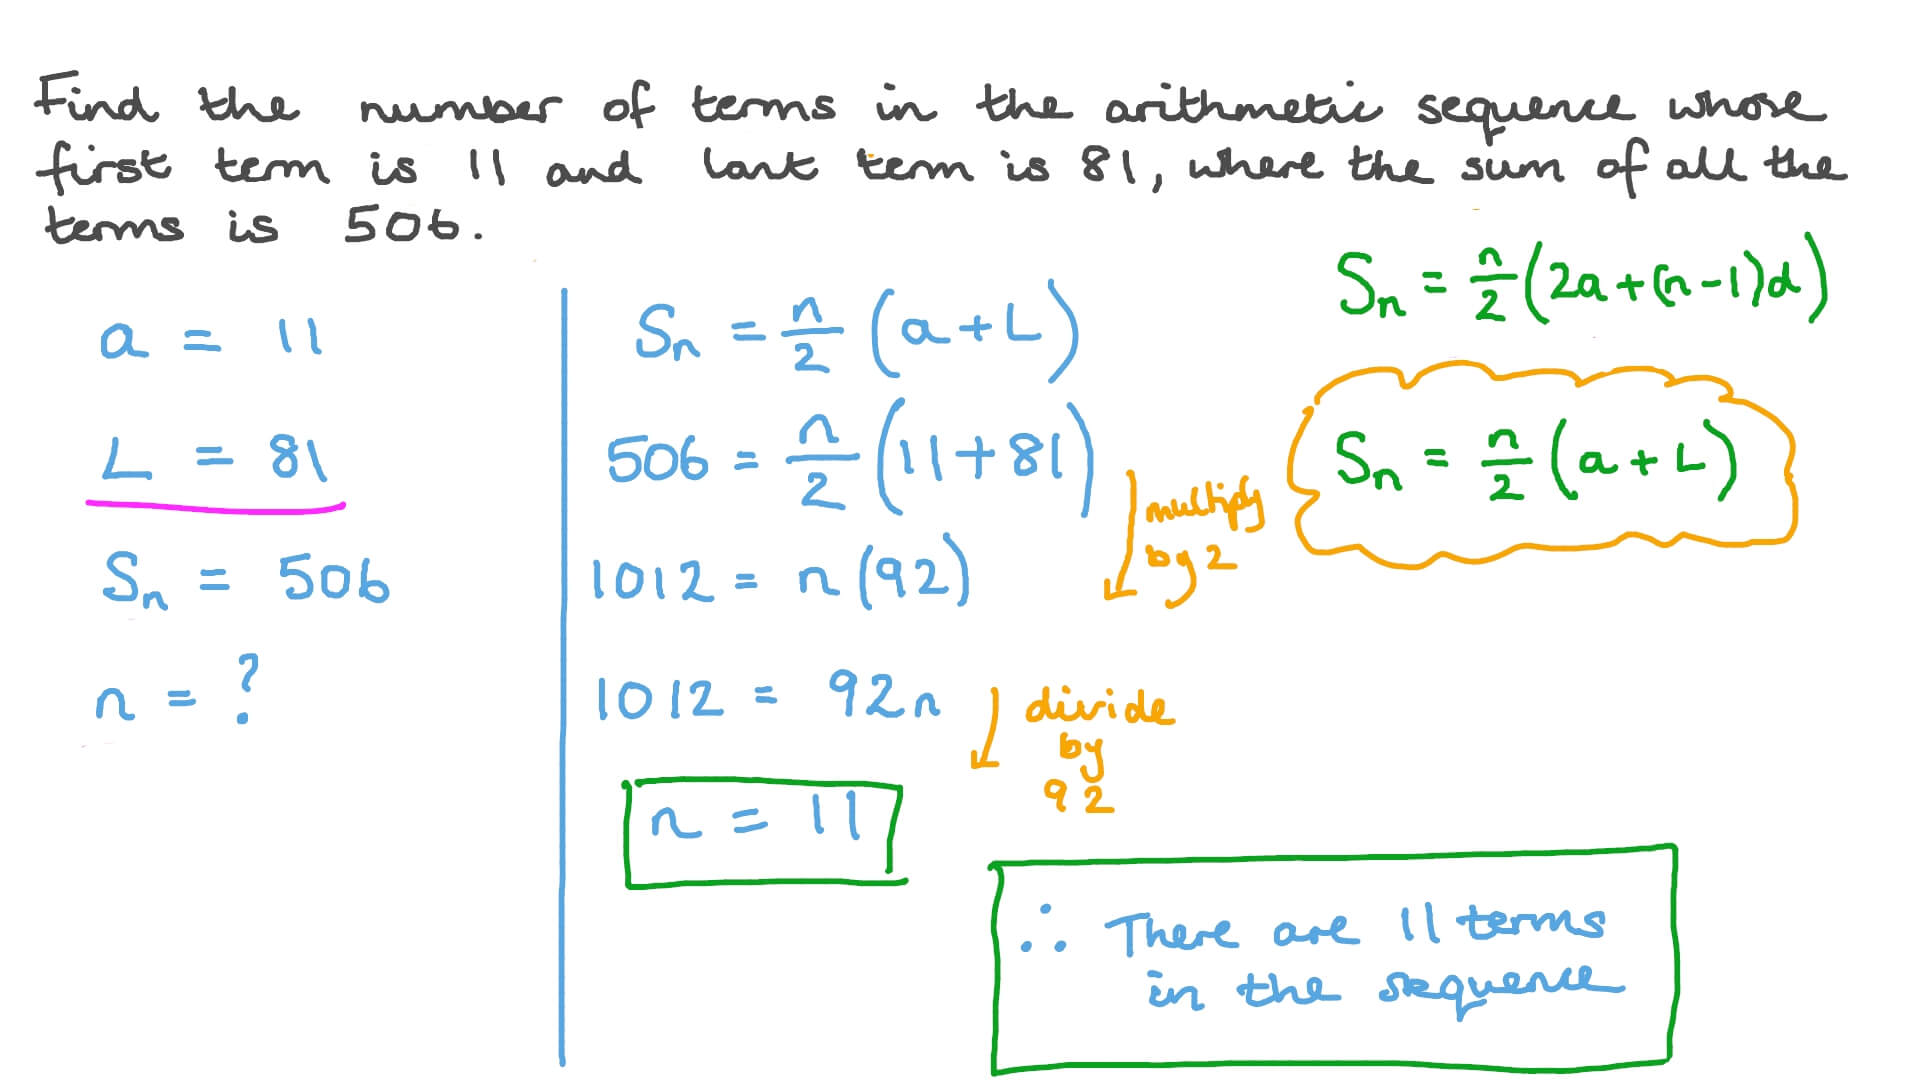 Find the number of terms in the arithmetic sequence whose
first term is 11 and last term is 81, where the sum of all the
terms is 506.
a = 11
L = 81
Sₙ = 506
n = ?
Sₙ = n/2 (a + L)
506 = n/2 (11 + 81)
multiply
by 2
1012 = n (92)
1012 = 92n
divide
by
92
n = 11
Sₙ = n/2 (2a + (n - 1)d)
Sₙ = n/2 (a + L)
∴ There are 11 terms
in the sequence